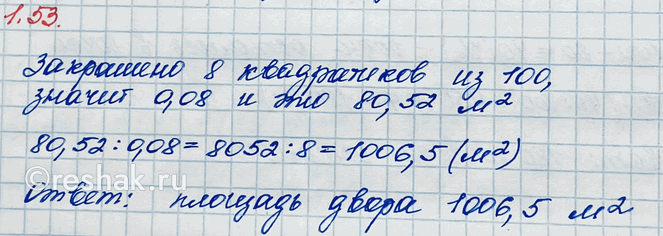 1.53.
Закрашено 8 квадратиков из 100,
значит 0,08 и это 80,52 м²
80,52 : 0,08 = 8052 : 8 = 1006,5 (м²)
©reshak.ru
Ответ: площадь двора 1006,5 м²